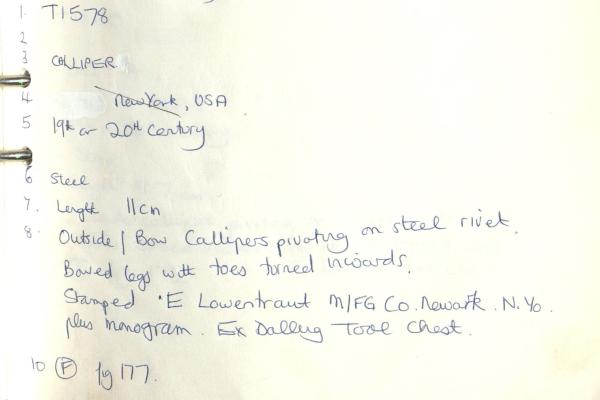 1. T1578
2
3 CALLIPER
4 New York, USA
5 19th or 20th Century
6 Steel
7. Length 11cm
8. Outside / Bow Callipers pivoting on steel rivet.
Bowed legs with toes turned inwards.
Stamped 'E Lowentraut M/FG Co. Newark. N.Yo.
plus monogram. Ex Dalling Tool Chest.
10 F fg 177.